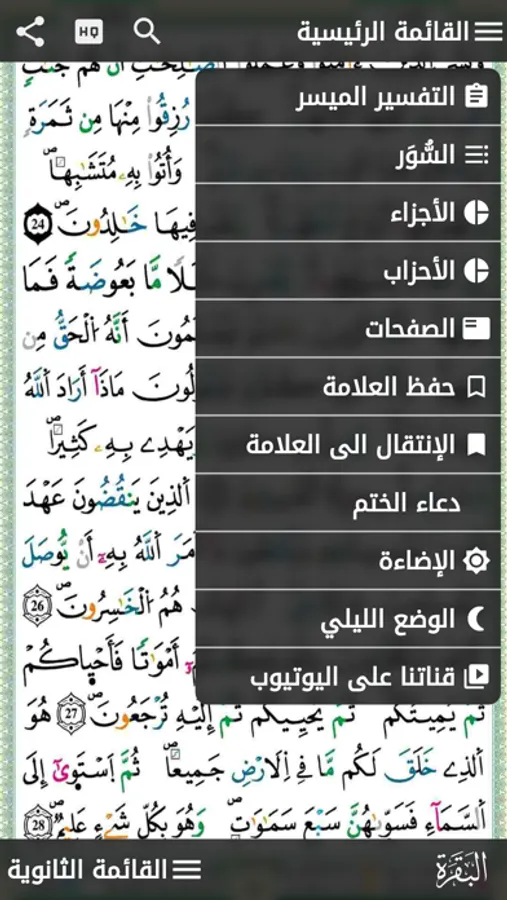 القائمة الرئيسية
HQ
التفسير الميسر
السُّوَر
الأجزاء
الأحزاب
الصفحات
حفظ العلامة
الإنتقال الى العلامة
دعاء الختم
الإضاءة
الوضع الليلي
قناتنا على اليوتيوب
رُزِقُواْ مِنْهَا مِن ثَمَرَةٖ
وَأُتُواْ بِهِۦ مُتَشَٰبِهاٗۖ
فِيهَا خَٰلِدُونَۖ 24
مَّا بَعُوضَةٗ فَمَا
أَنَّهُ اُ۬لْحَقُّ مِن
مَاذَآ أَرَادَ اَ۬للَّهُ
يَهْدِے بِهِۦ كَثِيراٗۖ
اَ۬لذِينَ يَنقُضُونَ عَهْدَ
اَ۬للَّهُ بِهِۦٓ أَنْ يُّوصَلَ
هُمُ اُ۬لْخَٰسِرُونَۖ 26
أَمْوَٰتاٗ فَأَحْيٰ۪كُمْ
ثُمَّ يُمِيتُكُمْ ثُمَّ يُحْيِيكُمْ ثُمَّ إِلَيْهِ تُرْجَعُونَۖ 27 هُوَ
اَ۬لذِے خَلَقَ لَكُم مَّا فِے اِ۬لَارْضِ جَمِيعاٗۖ ثُمَّ اَ۪سْتَو۪يٰٓ إِلَى
اَ۬لسَّمَآءِ فَسَوّ۪يٰهُنَّ سَبْعَ سَمَٰوَٰتٖۖ وَهُوَ بِكُلِّ شَےْءٍ عَلِيمٞۖ 28
القائمة الثانوية
البَقَرَة